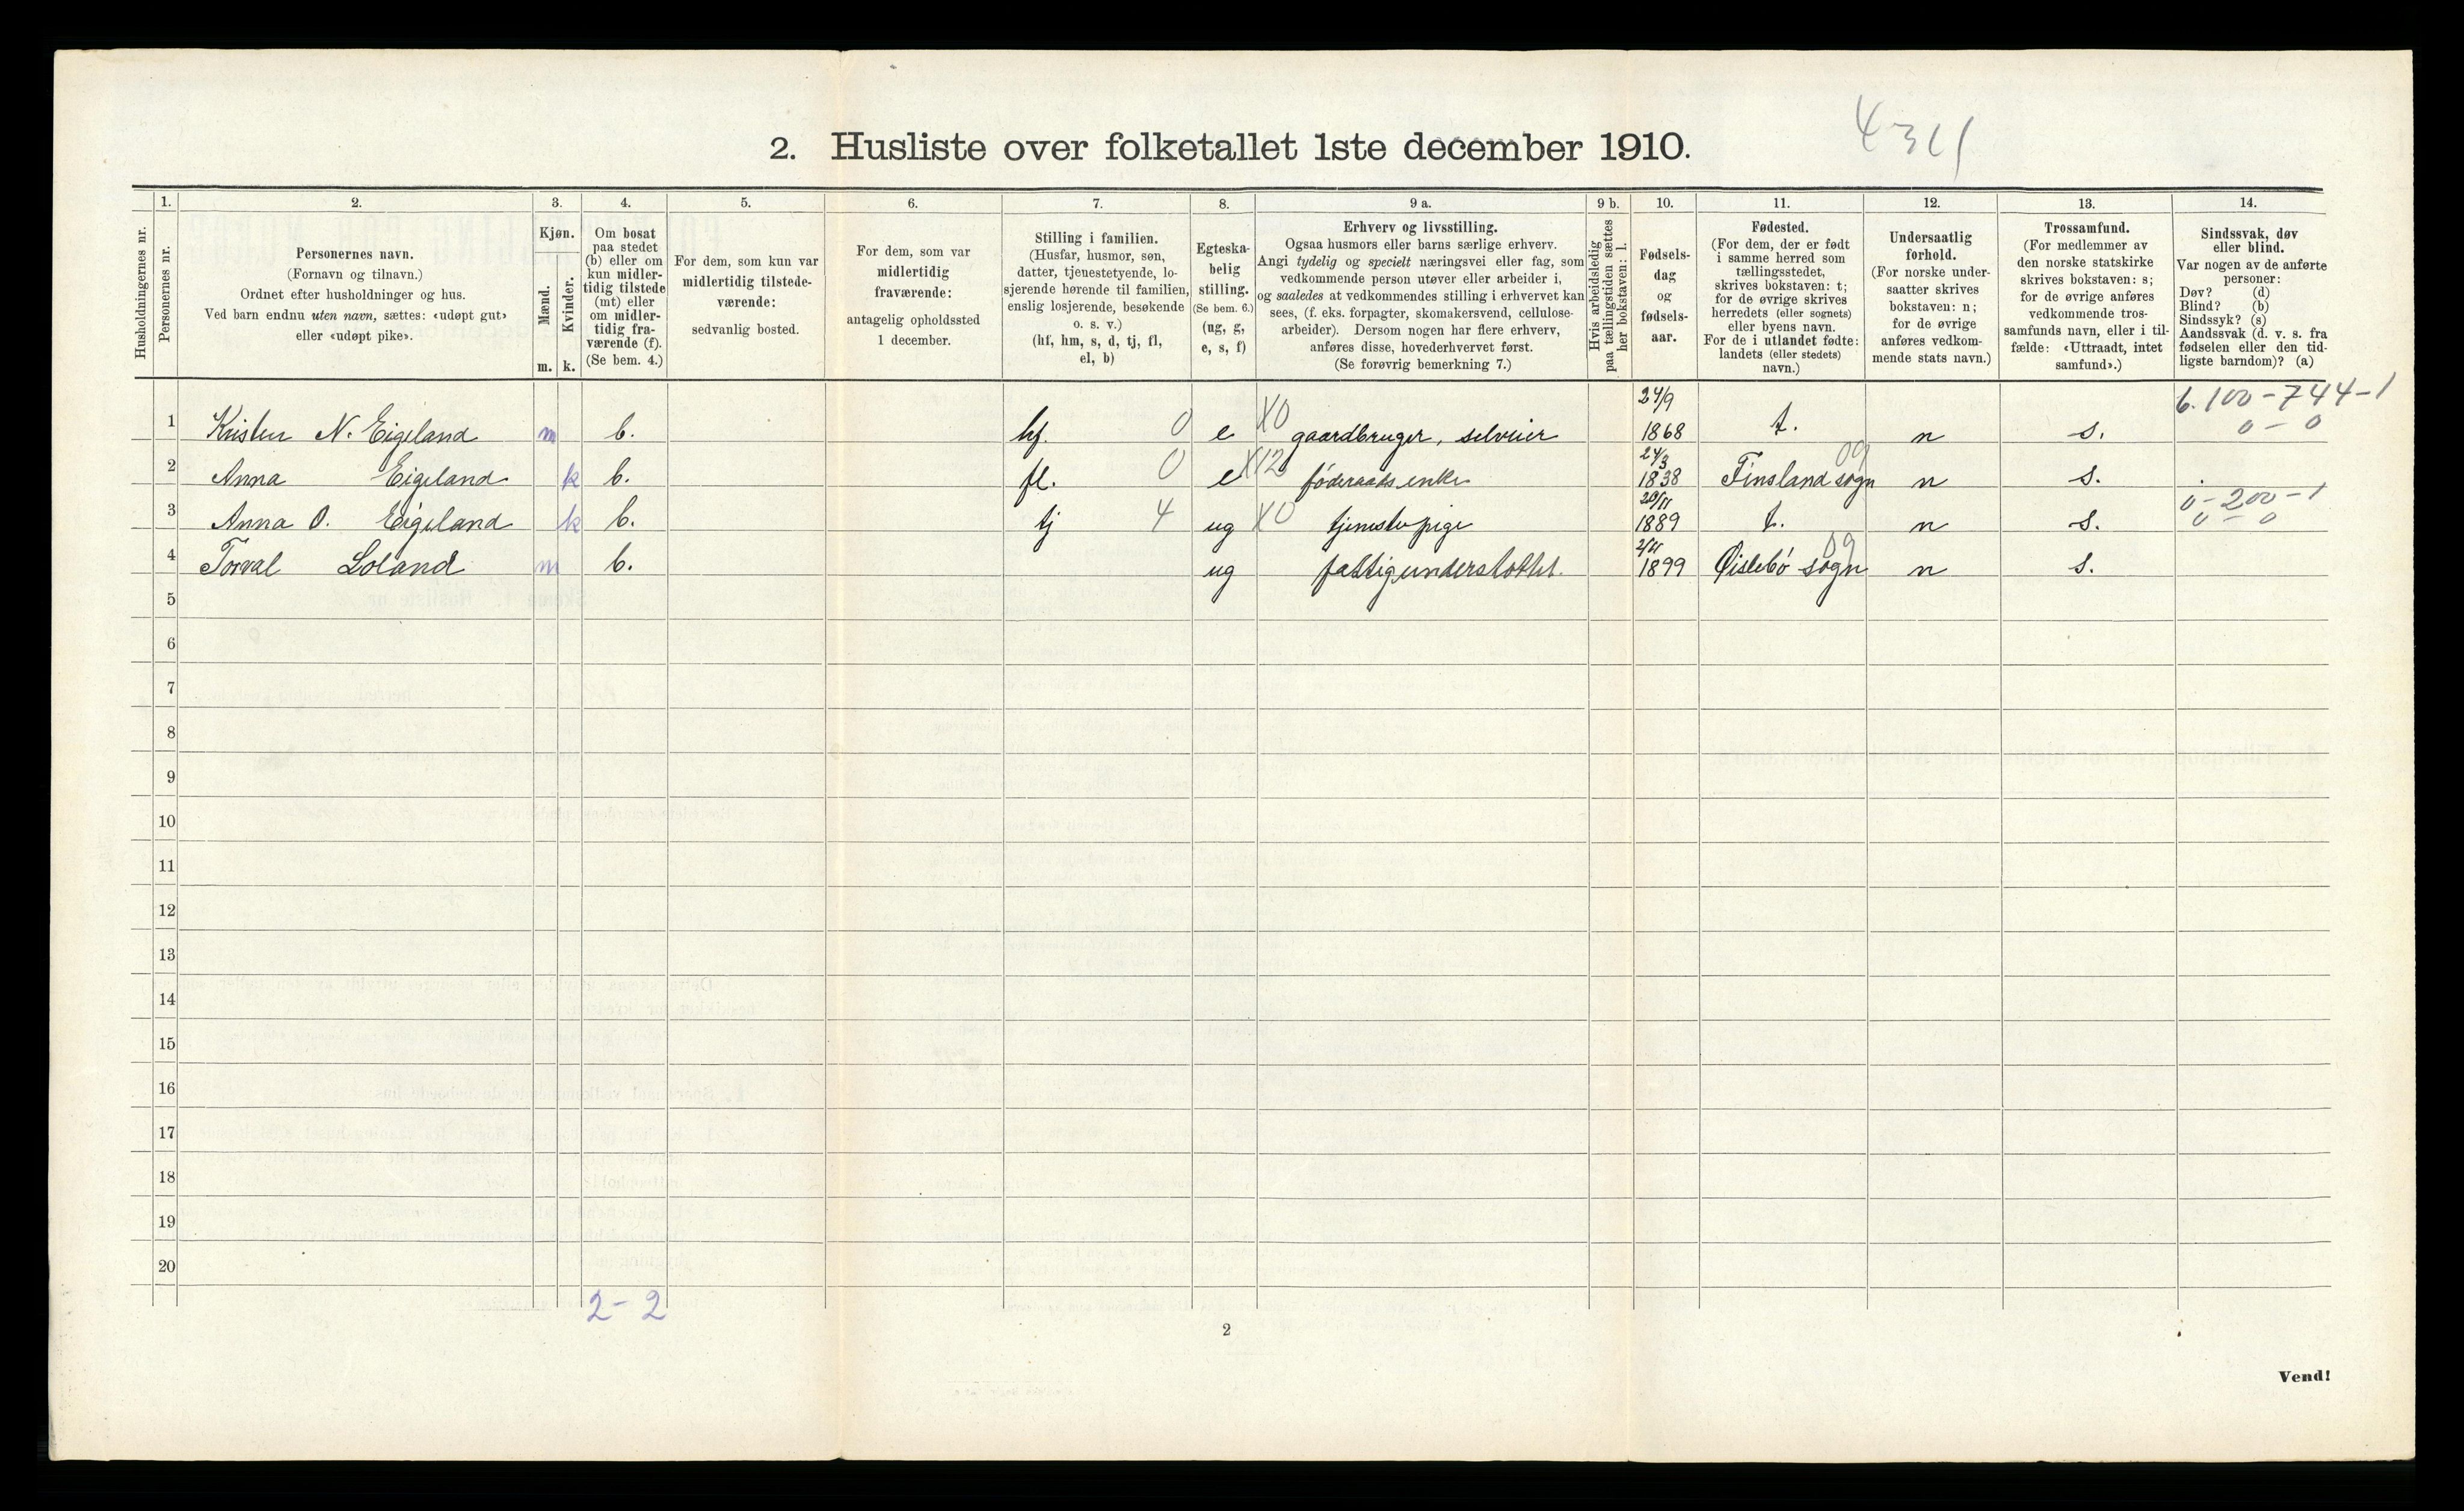 2. Husliste over folketallet 1ste december 1910.
1. 2. 3. 4. 5. 6. 7. 8. 9 a. 9 b. 10. 11. 12. 13. 14.
Husholdningernes nr.
Personernes nr.
Personernes navn.
(Fornavn og tilnavn.)
Ordnet efter husholdninger og hus.
Ved barn endnu uten navn, sættes: «udøpt gut»
eller «udøpt pike».
Kjøn.
Mænd.
Kvinder.
m. k.
Om bosat
paa stedet
(b) eller om
kun midler-
tidig tilstede
(mt) eller
om midler-
tidig fra-
værende (f).
(Se bem. 4.)
For dem, som kun var
midlertidig tilstede-
værende:
sedvanlig bosted.
For dem, som var
midlertidig
fraværende:
antagelig opholdssted
1 december.
Stilling i familien.
(Husfar, husmor, søn,
datter, tjenestetyende, lo-
sjerende hørende til familien,
enslig losjerende, besøkende
o. s. v.)
(hf, hm, s, d, tj, fl,
el, b)
Egteska-
belig
stilling.
(Se bem. 6.)
(ug, g,
e, s, f)
Erhverv og livsstilling.
Ogsaa husmors eller barns særlige erhverv.
Angi tydelig og specielt næringsvei eller fag, som
vedkommende person utøver eller arbeider i,
og saaledes at vedkommendes stilling i erhvervet kan
sees, (f. eks. forpagter, skomakersvend, cellulose-
arbeider). Dersom nogen har flere erhverv,
anføres disse, hovederhvervet først.
(Se forøvrig bemerkning 7.)
Hvis arbeidsledig
paa tællingstiden sættes
her bokstaven: l.
Fødsels-
dag
og
fødsels-
aar.
Fødested.
(For dem, der er født
i samme herred som
tællingsstedet,
skrives bokstaven: t;
for de øvrige skrives
herredets (eller sognets)
eller byens navn.
For de i utlandet fødte:
landets (eller stedets)
navn.)
Undersaatlig
forhold.
(For norske under-
saatter skrives
bokstaven: n;
for de øvrige
anføres vedkom-
mende stats navn.)
Trossamfund.
(For medlemmer av
den norske statskirke
skrives bokstaven: s;
for de øvrige anføres
vedkommende tros-
samfunds navn, eller i til-
fælde: «Uttraadt, intet
samfund».)
Sindssvak, døv
eller blind.
Var nogen av de anførte
personer:
Døv? (d)
Blind? (b)
Sindssyk? (s)
Aandssvak (d. v. s. fra
fødselen eller den tid-
ligste barndom)? (a)
6.100-744-1
0-0
1 Kristen N. Eigeland m b. hf. 0 e X0 gaardbruger, selveier 24/9 1868 t. n s.
2 Anna Eigeland k b. fl. 0 e X12 føderaadsenke 24/3 1838 Finsland sogn 09 n s.
0-200-1
0-0
3 Anna O. Eigeland k b. tj 4 ug X0 tjenestepige 20/11 1889 t. n s.
4 Torval Loland m b. ug fattigunderstøttet. 2/11 1899 Øislebø sogn 09 n s.
5
6
7
8
9
10
11
12
13
14
15
16
17
18
19
20
2-2
2
Vend!